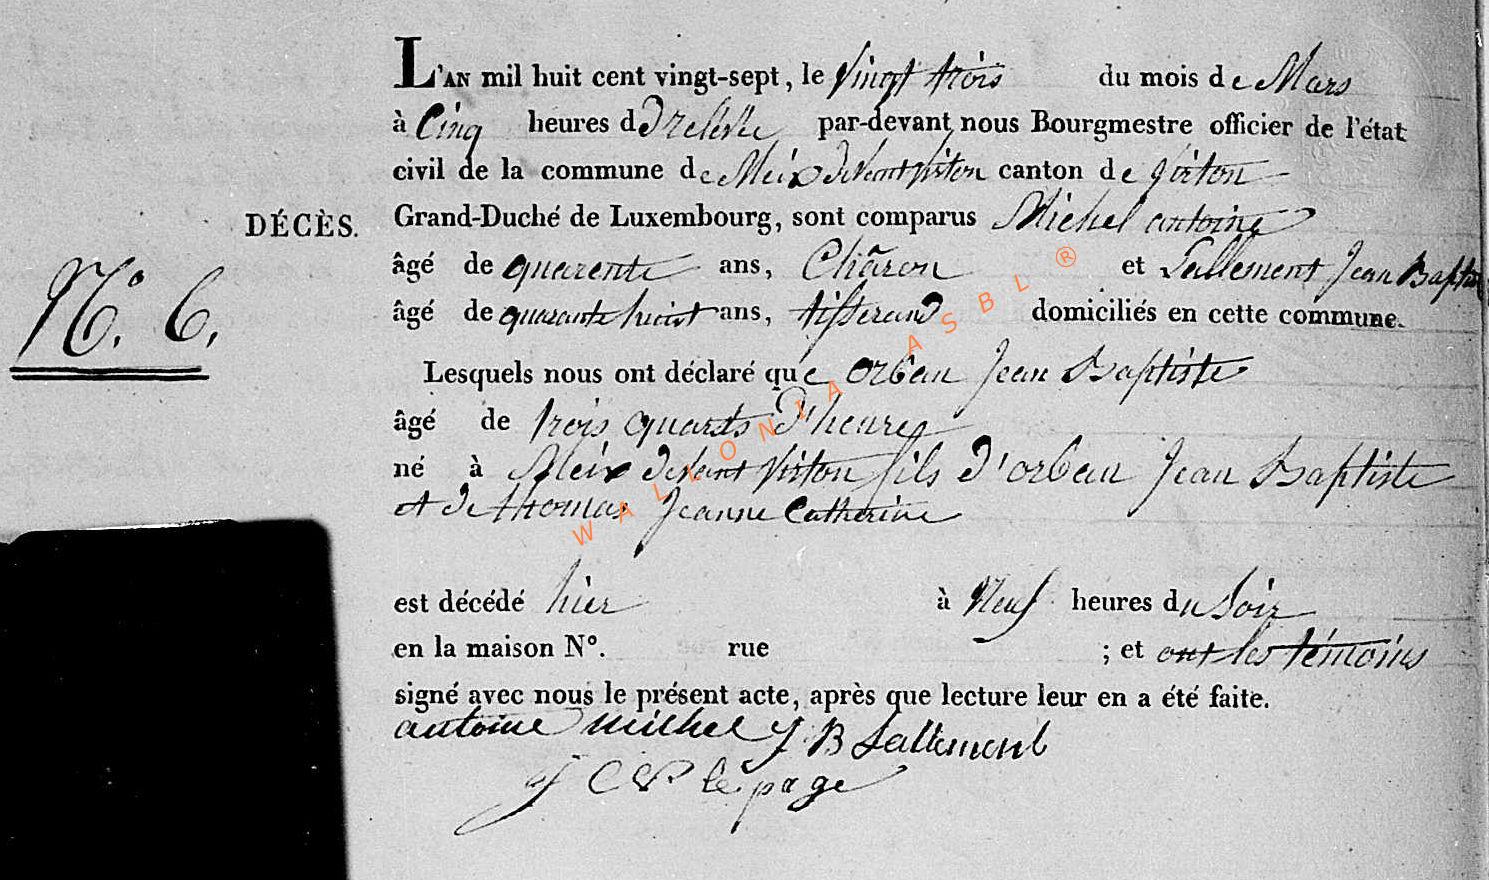 L'AN mil huit cent vingt-sept, le vingt trois du mois de Mars
à Cinq heures de relevée par-devant nous Bourgmestre officier de l'état
civil de la commune de Meix devant virton canton de virton
DÉCÈS. Grand-Duché de Luxembourg, sont comparus Michel antoine
âgé de quarente ans, Charon et Lallement Jean Baptis
N° 6. âgé de quarante huit ans, tisserand domiciliés en cette commune.
Lesquels nous ont déclaré que orban Jean Baptiste
âgé de trois quarts d'heures
né à Meix devant virton fils d'orban Jean Baptiste
et de thomas Jeanne Catherine
est décédé hier à Neuf heures du Soir
en la maison N°. rue ; et ont les témoins
signé avec nous le présent acte, après que lecture leur en a été faite.
antoine michel J B Lallement
lepage
WALLONIA ASBL ®